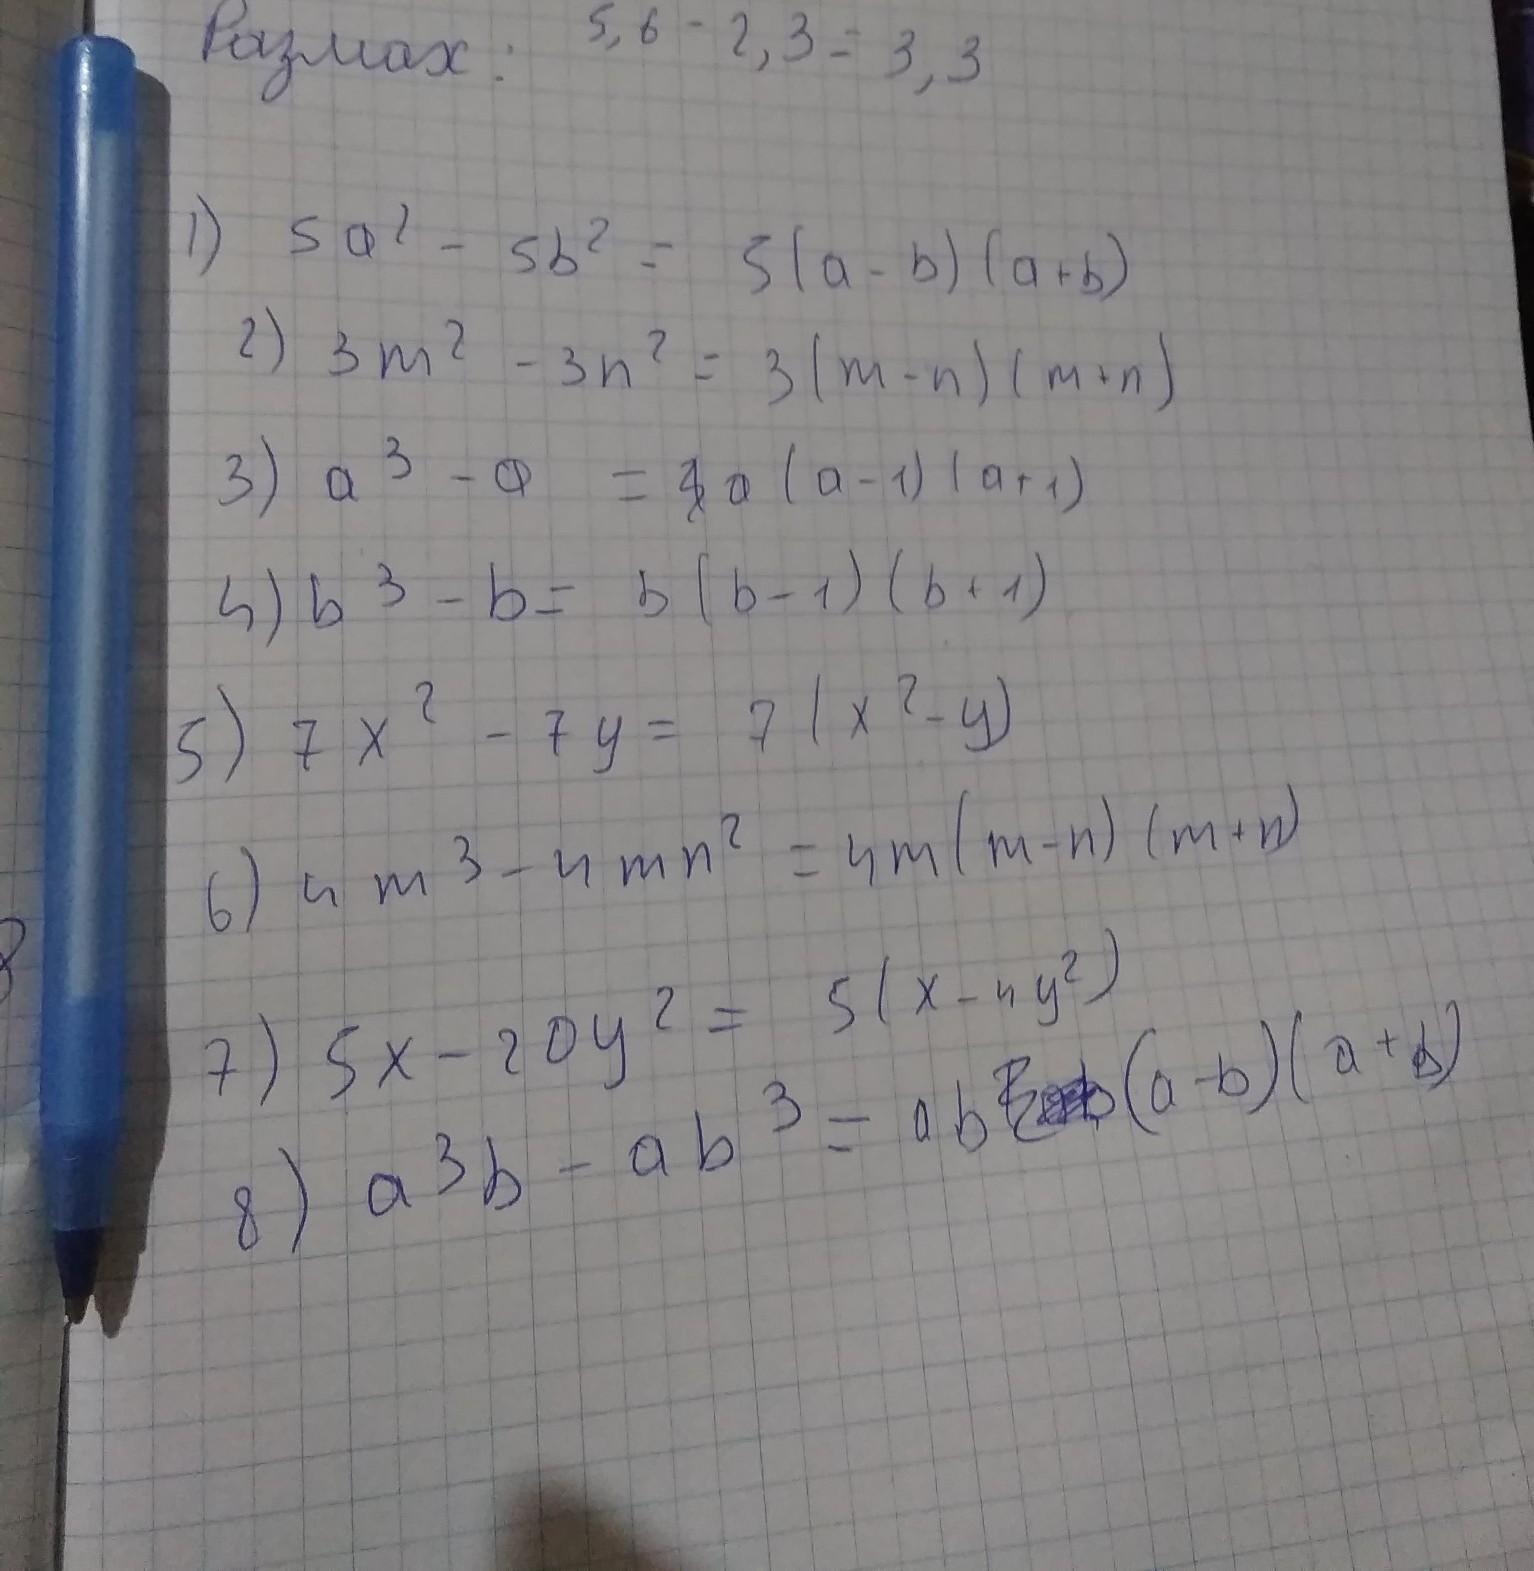 Размах: 5,6 - 2,3 = 3,3
1) 5a² - 5b² = 5(a - b)(a+b)
2) 3m² - 3n² = 3(m-n)(m+n)
3) a³ - a = a(a-1)(a+1)
4) b³ - b = b(b-1)(b+1)
5) 7x² - 7y = 7(x²-y)
6) 4m³ - 4mn² = 4m(m-n)(m+n)
7) 5x - 20y² = 5(x - 4y²)
8) a³b - ab³ = ab(a-b)(a+b)